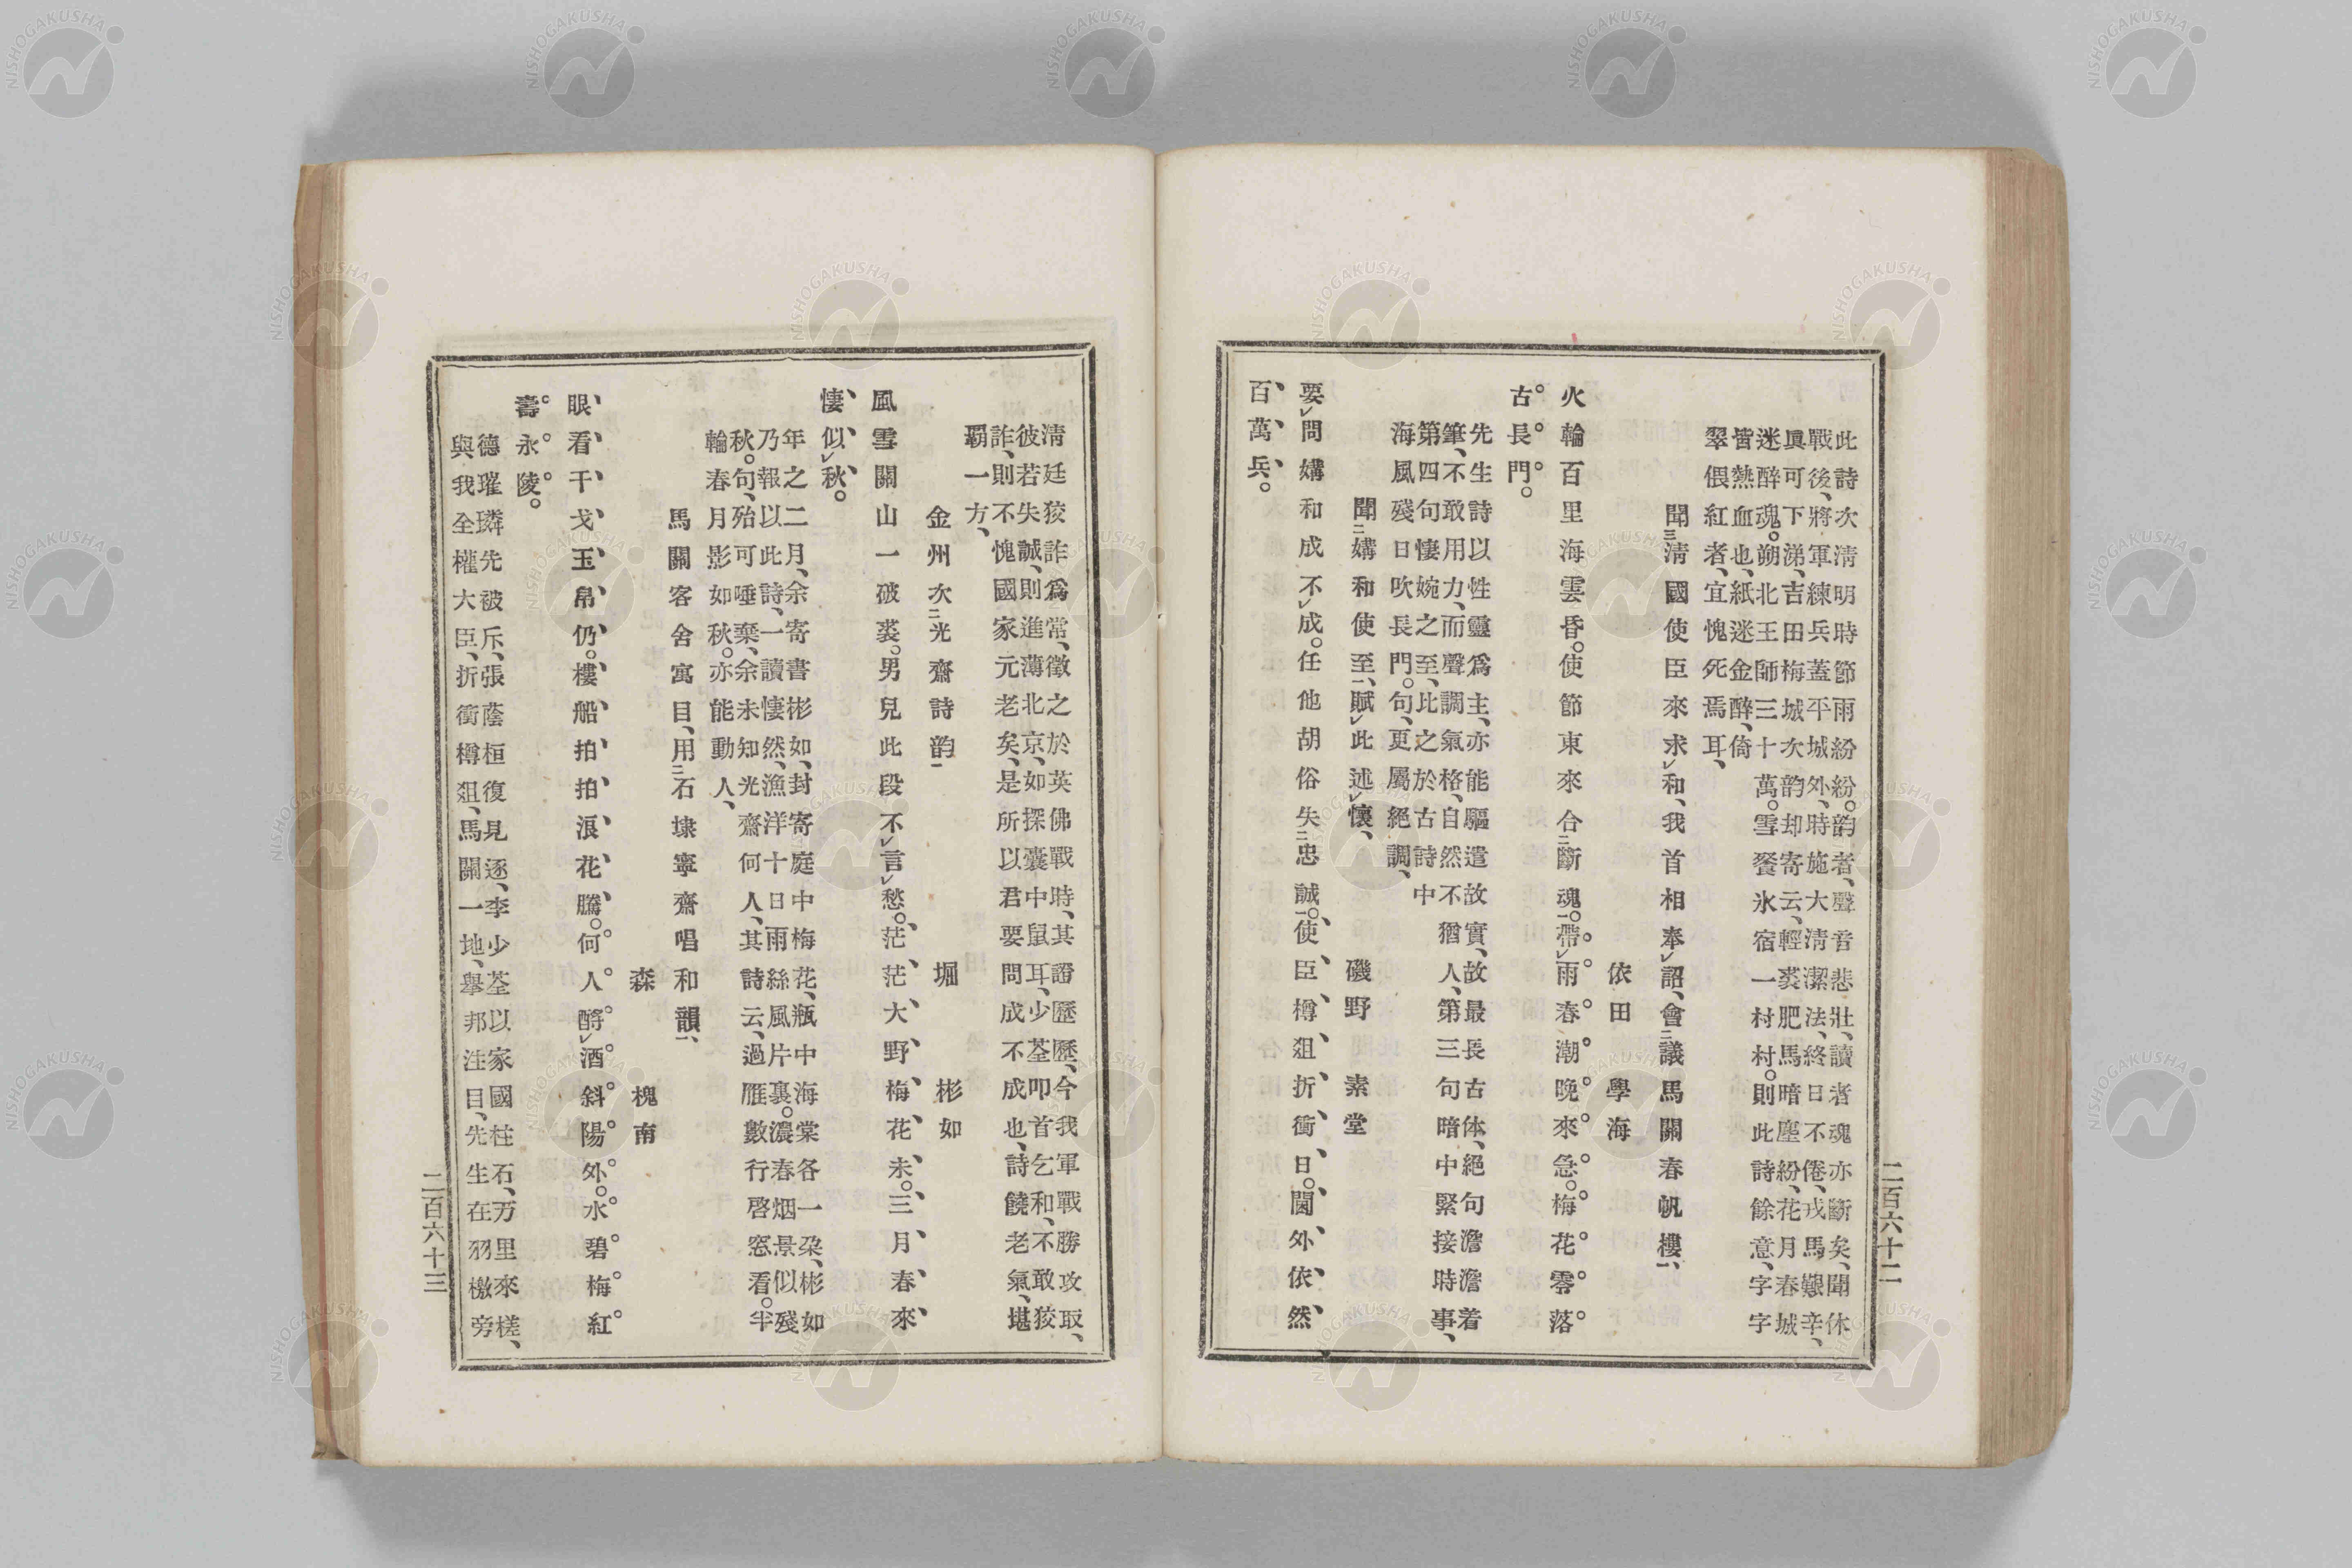 此詩次淸明時節雨紛紛。韵者、聲音悲壯、讀者魂亦斷矣、聞休
戰後、將軍練兵蓋平城外、時施大淸潔法、終日不倦、戎馬艱辛、
眞可下涕、吉田梅城次韵却寄云、輕裘肥馬暗塵紛、花月春城
迷醉魂。朔北王師三十萬。雪餐氷宿一村村。則此詩餘意、字字
皆熱血也、紙迷金醉、倚
翠偎紅者、宜愧死焉耳、
聞三淸國使臣來求レ和、我首相奉レ詔、會二議馬關春帆樓一、
依田學海
火輪百里海雲昏。使節東來合二斷魂一。帶レ雨春潮晚來急。梅花零落
古長門。
先生詩以性靈爲主、亦能驅遣故實、故最長古体、絕句澹澹着
筆、不敢用力、而聲調氣格、自然不猶人、第三句暗中緊接時事、
第四句悽婉之至、比之於古詩中
海風殘日吹長門。句、更屬絕調、
聞二媾和使至一、賦レ此述レ懷、
磯野素堂
要レ問媾和成不レ成。任他胡俗失二忠誠一。使臣樽俎折衝日。閫外依然
百萬兵。
二百六十二
淸廷狡詐爲常、徵之於英佛戰時、其證歷歷、今我軍戰勝攻取、
彼若失誠、則進薄北京、如探囊中鼠耳、少荃叩首乞和、不敢狡
詐、則不愧國家元老矣、是所以君要問成不成也、詩饒老氣、堪
覇一方、
金州次二光齋詩韵一
堀彬如
風雪關山一破裘。男兒此段不レ言レ愁。茫茫大野梅花未。三月春來
悽似レ秋。
年之二月、余寄書彬如、封寄庭中梅花、瓶中海棠各一朶、彬如
乃報以此詩、一讀悽然、漁洋十日雨絲風片裏。濃春烟景似殘
秋。句、殆可唾棄、余未知光齋何人、其詩云、過雁數行啓窓看。半
輪春月影如秋。亦能動人、
馬關客舍寓目、用二石埭寧齋唱和韻一、
森槐南
眼看干戈玉帛仍。樓船拍拍浪花騰。何人酹レ酒斜陽外。水碧梅紅
壽永陵。
德璀璘先被斥、張蔭桓復見逐、李少荃以家國柱石、万里來槎、
與我全權大臣、折衝樽俎、馬關一地、擧邦注目、先生在羽檄旁
二百六十三